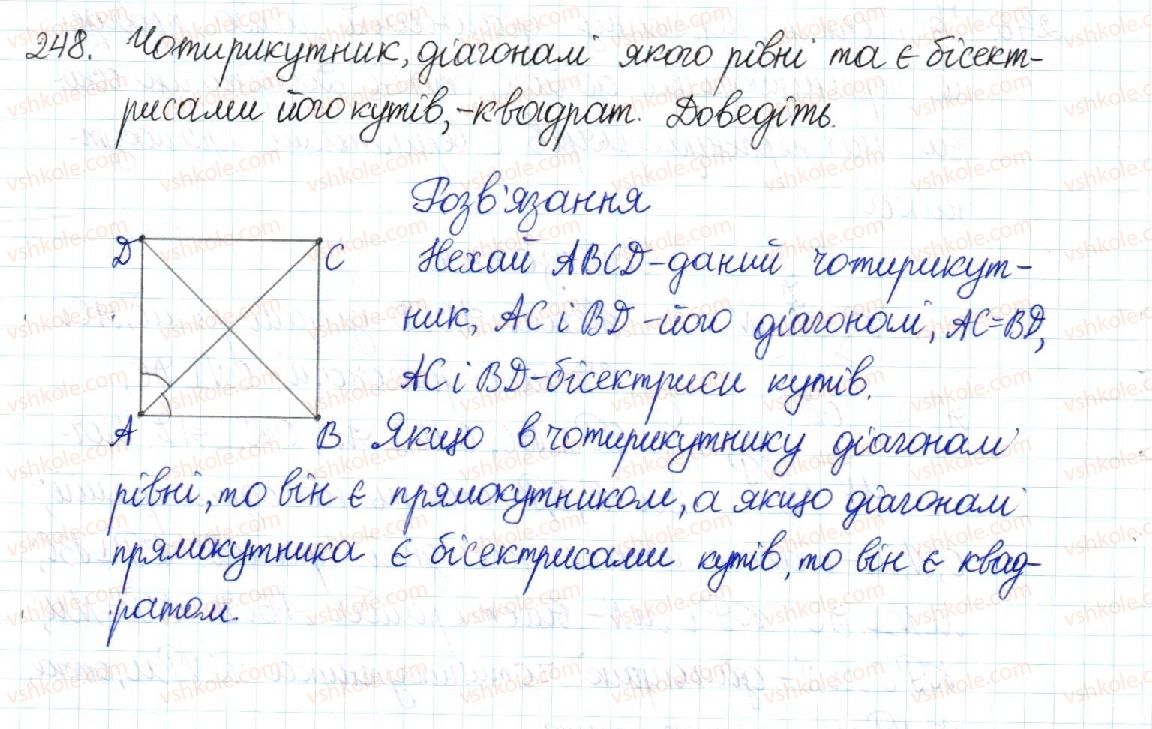 248. Чотирикутник, діагоналі якого рівні та є бісект-
рисами його кутів, - квадрат. Доведіть.
Розв'язання
D C Нехай ABCD - даний чотирикут-
ник, AC і BD - його діагоналі, AC=BD,
AC і BD - бісектриси кутів.
A B Якщо в чотирикутнику діагоналі
рівні, то він є прямокутником, а якщо діагоналі
прямокутника є бісектрисами кутів, то він є квад-
ратом.